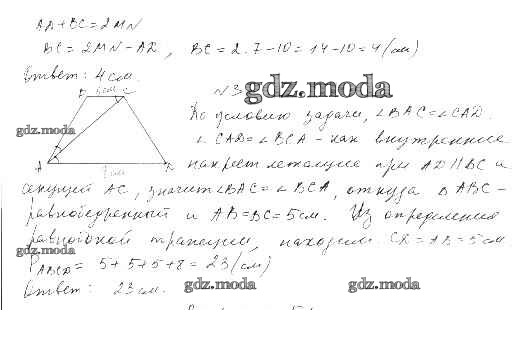 AD+BC=2MN
BC=2MN-AD, BC=2·7-10=14-10=4(см)
Ответ: 4 см.
N3
gdz.moda
По условию задачи, ∠BAC=∠CAD.
gdz.moda
∠CAD=∠BCA - как внутренние
A
накрест лежащие при AD||BC и
секущей AC, значит ∠BAC=∠BCA, откуда ΔABC-
равнобедренный и AB=BC=5см. Из определения
равнобокой трапеции, находим CD=AB=5см.
gdz.moda
P ABCD = 5+5+5+8=23(см)
Ответ: 23см.
gdz.moda gdz.moda